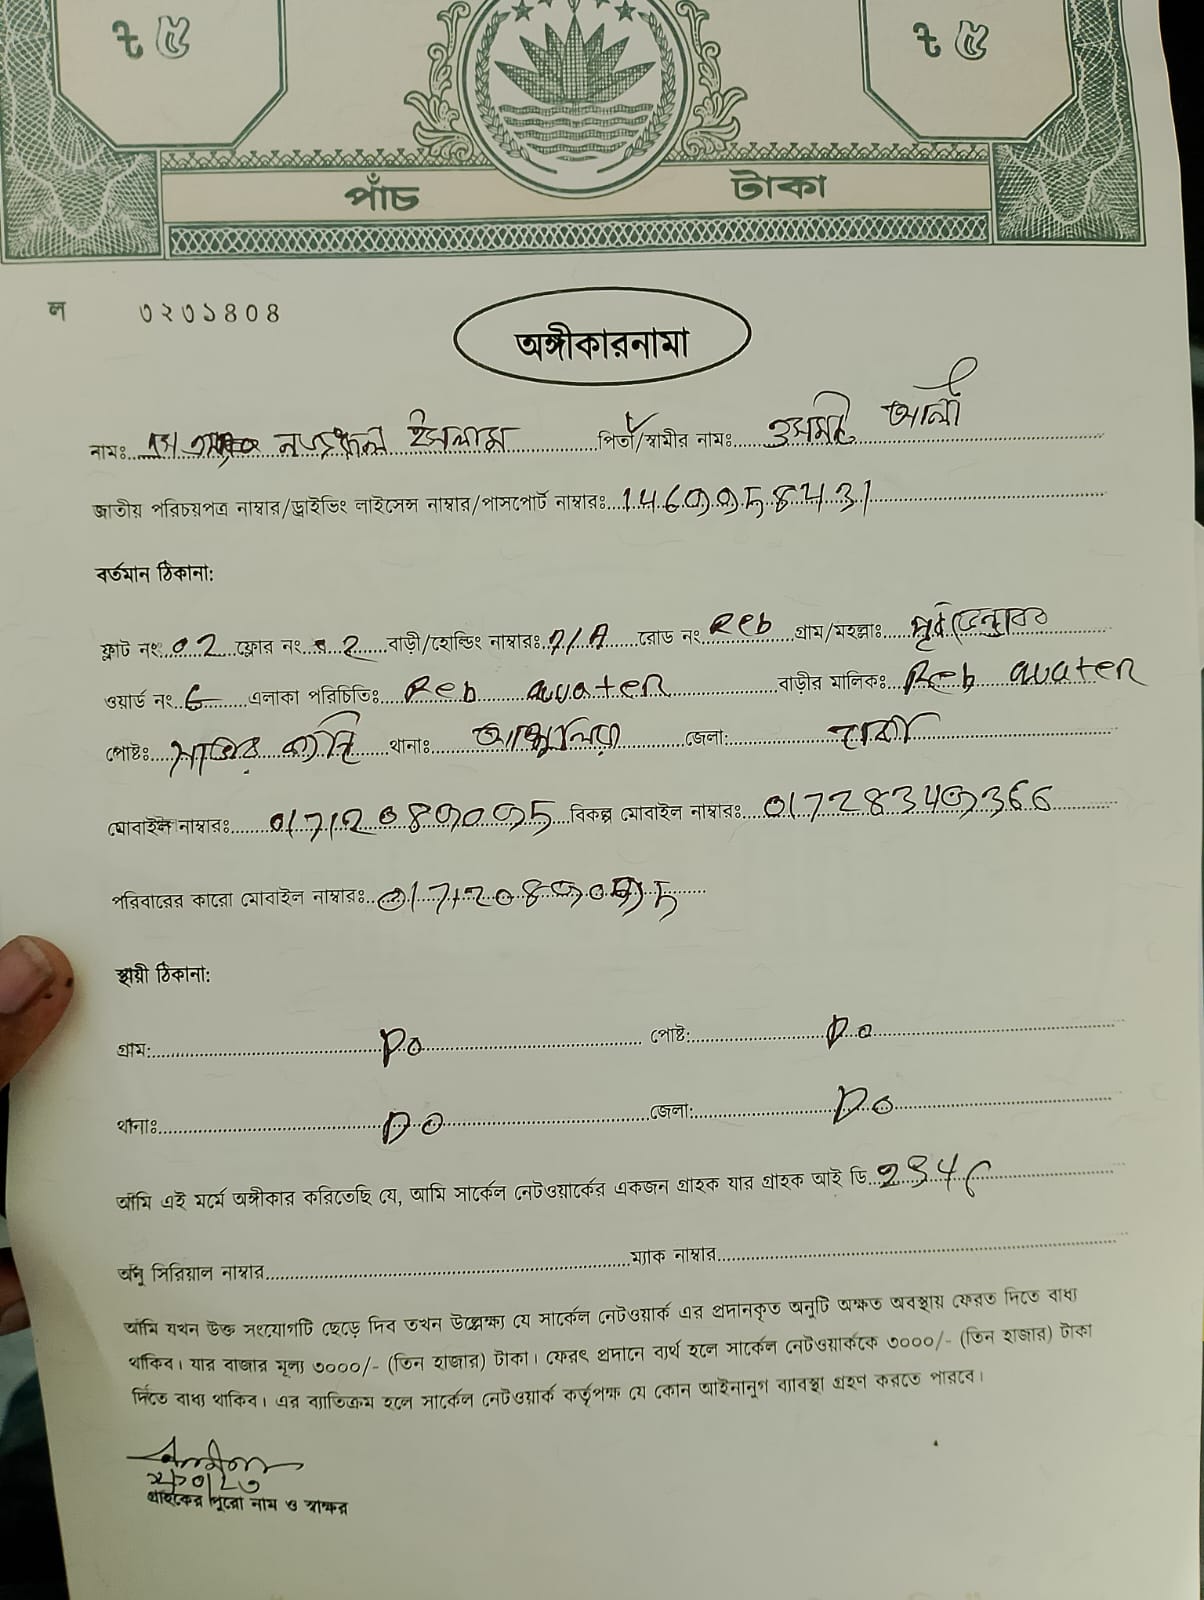 ৳ ৫ ৳ ৫
পাঁচ টাকা
ল ৩২৩১৪০৪
অঙ্গীকারনামা
নামঃ নজরুল ইসলাম পিতা/স্বামীর নামঃ ওসমান আলী
জাতীয় পরিচয়পত্র নাম্বার/ড্রাইভিং লাইসেন্স নাম্বার/পাসপোর্ট নাম্বারঃ
বর্তমান ঠিকানা:
ফ্লাট নংঃ 02 ফ্লোর নংঃ 2 বাড়ী/হোল্ডিং নাম্বারঃ 7/A রোড নং Reb গ্রাম/মহল্লাঃ
ওয়ার্ড নংঃ 6 এলাকা পরিচিতিঃ Reb avater বাড়ীর মালিকঃ Reb avater
পোষ্টঃ থানাঃ আশুলিয়া জেলা: ঢাকা
মোবাইল নাম্বারঃ বিকল্প মোবাইল নাম্বারঃ
পরিবারের কারো মোবাইল নাম্বারঃ
স্থায়ী ঠিকানা:
গ্রাম: Do পোষ্ট: Do
থানাঃ Do জেলা: Do
আমি এই মর্মে অঙ্গীকার করিতেছি যে, আমি সার্কেল নেটওয়ার্কের একজন গ্রাহক যার গ্রাহক আই ডি
অনু সিরিয়াল নাম্বার ম্যাক নাম্বার
আমি যখন উক্ত সংযোগটি ছেড়ে দিব তখন উল্লেক্ষ্য যে সার্কেল নেটওয়ার্ক এর প্রদানকৃত অনুটি অক্ষত অবস্থায় ফেরত দিতে বাধ্য
থাকিব। যার বাজার মূল্য ৩০০০/- (তিন হাজার) টাকা। ফেরৎ প্রদানে ব্যর্থ হলে সার্কেল নেটওয়ার্ককে ৩০০০/- (তিন হাজার) টাকা
দিতে বাধ্য থাকিব। এর ব্যতিক্রম হলে সার্কেল নেটওয়ার্ক কর্তৃপক্ষ যে কোন আইনানুগ ব্যাবস্থা গ্রহণ করতে পারবে।
গ্রাহকের পুরো নাম ও স্বাক্ষর